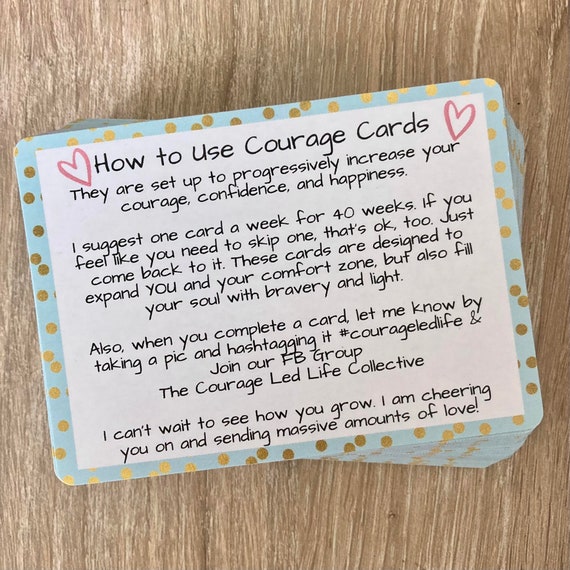 How to Use Courage Cards
They are set up to progressively increase your
courage, confidence, and happiness.
I suggest one card a week for 40 weeks. If you
feel like you need to skip one, that's ok, too. Just
come back to it. These cards are designed to
expand YOU and your comfort zone, but also fill
your soul with bravery and light.
Also, when you complete a card, let me know by
taking a pic and hashtagging it #courageledlife &
Join our FB Group
The Courage Led Life Collective
I can't wait to see how you grow. I am cheering
you on and sending massive amounts of love!